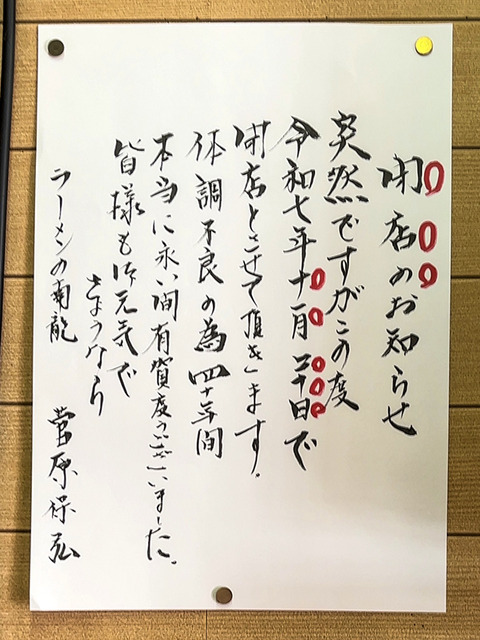 閉店のお知らせ
突然ですがこの度
令和七年十月三十日で
閉店とさせて頂きます.
体調不良の為四十年間
本当に永い間有賀度うございました.
皆様も御元気で
さようなら
ラーメンの南龍 菅原保弘